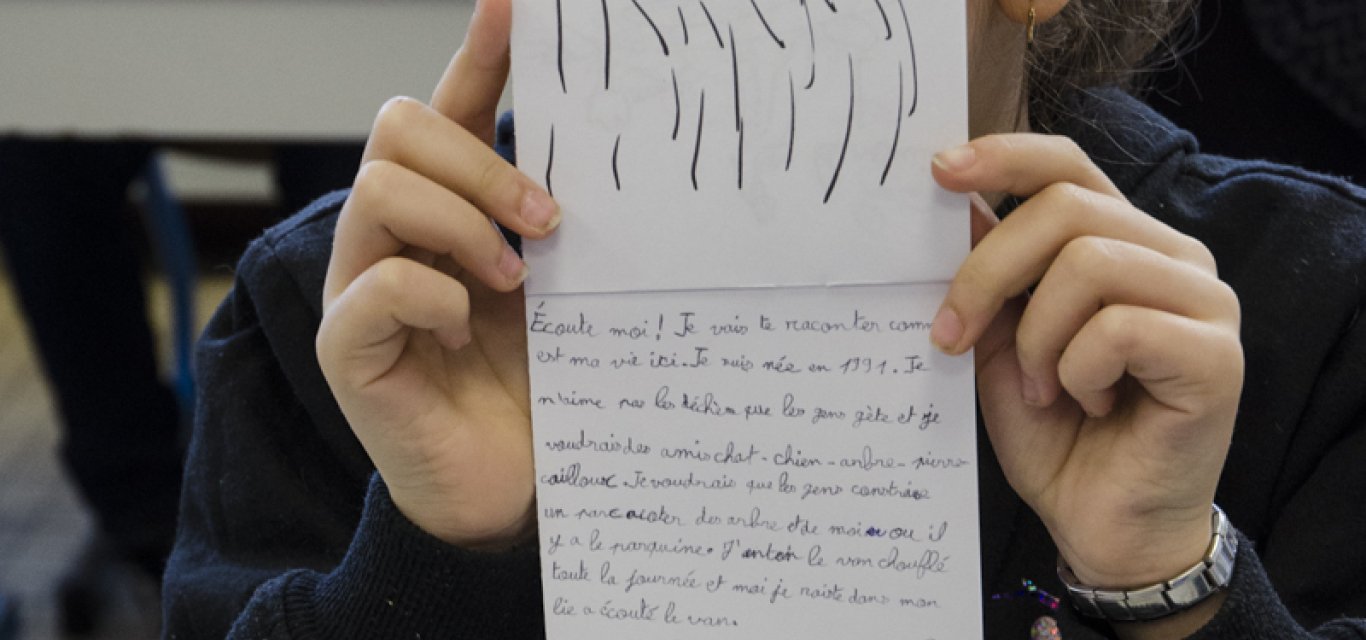 Écoute moi ! Je vais te raconter comm
est ma vie ici. Je suis née en 1991. Je
n'aime pas les déchès que les gens gète et je
voudrais des amis chat - chien - arbre - pierre -
cailloux. Je voudrais que les gens constrise
un parc acoter des arbre et de moi ou il
y a le parquine. J'enten le van choufflé
toute la journée et moi je reste dans mon
lie a écouté le van.